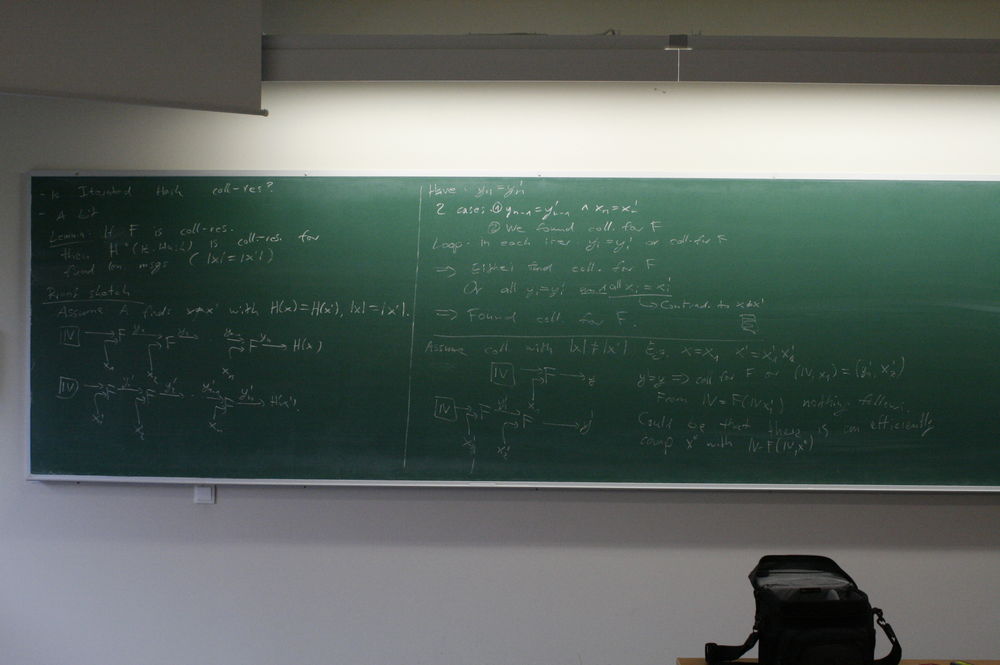 - Is Iterated Hash coll-res?
- A bit
Lemma: If F is coll-res.
then H (It. Hash) is coll-res. for
fixed len msgs (|x|=|x'|)
Proof sketch
Assume A finds x≠x' with H(x)=H(x'), |x|=|x'|.
IV → F y₁ → F y₂ → ... → F yₙ → H(x)
x₁ x₂ xₙ
IV → F y₁' → F y₂' → ... → F yₙ' → H(x').
x₁' x₂' xₙ'
Have: yₙ=yₙ'
2 cases: ① yₙ₋₁=y'ₙ₋₁ ∧ xₙ=xₙ'
② We found coll. for F
Loop. In each iter yᵢ=yᵢ' or coll. for F
⇒ Either find coll. for F
Or all yᵢ=yᵢ' and all xᵢ=xᵢ'
↳ Contrad. to x≠x'
⇒ Found coll. for F.
Assume coll with |x|≠|x'| E.g. x=x₁ x'=x₁'x₂'
IV → F → y
x₁
IV → F y₁' → F → y'
x₁' x₂'
y=y' ⇒ coll for F or (IV, x₁) = (y₁', x₂')
From IV=F(IV,x₁') nothing follows.
Could be that there is an efficiently
comp x* with IV=F(IV,x*)